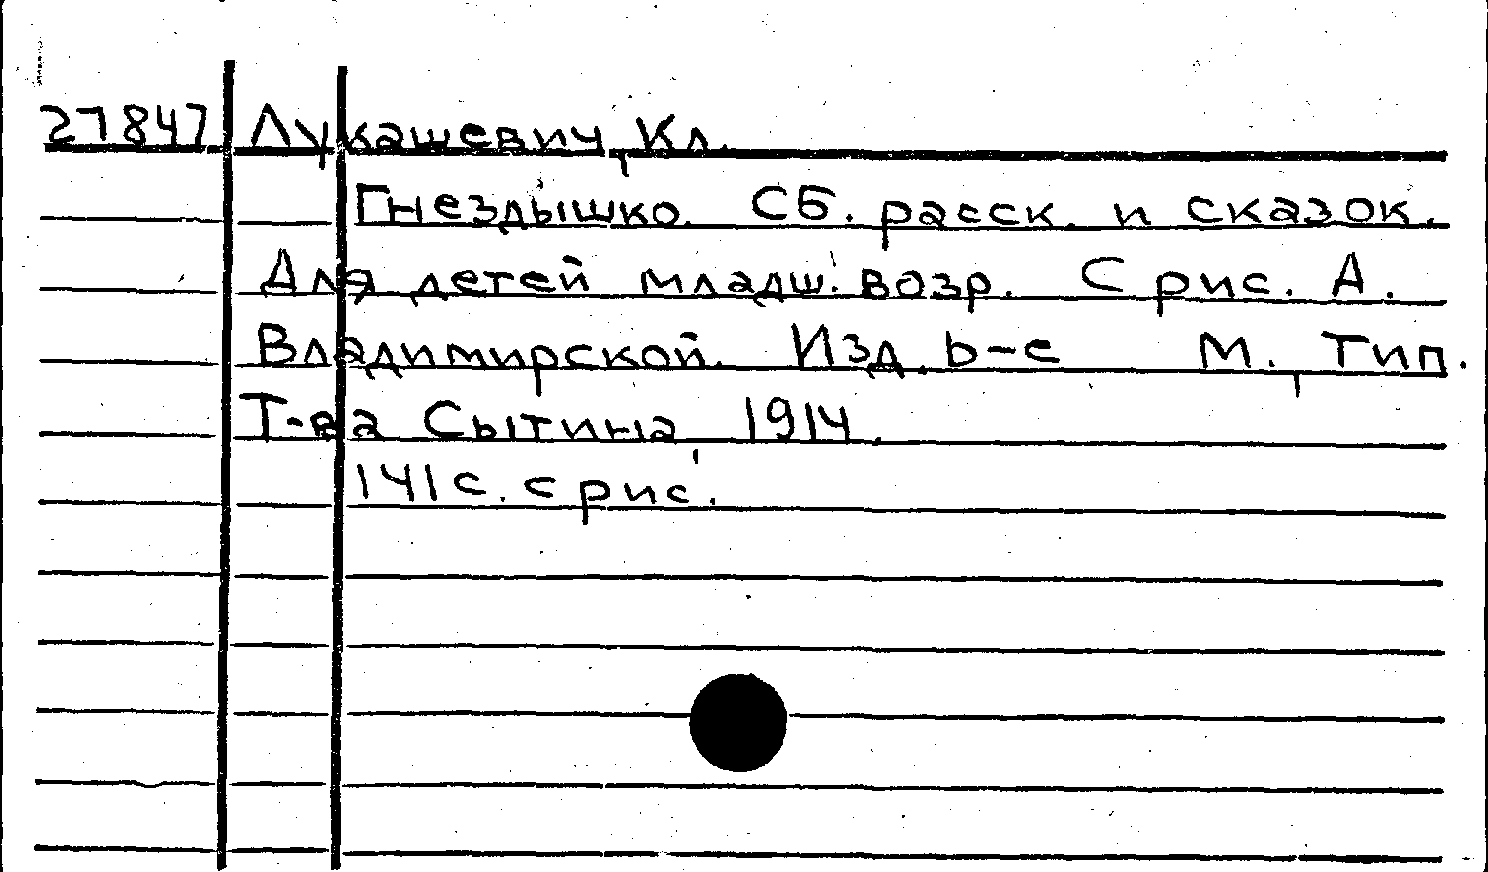 27847 Лукашевич, Кл.
Гнездышко. Сб. расск. и сказок.
Для детей младш. возр. С рис. А.
Владимирской. Изд. Ь-е М., Тип.
Т-ва Сытина 1914.
141 с. с рис.